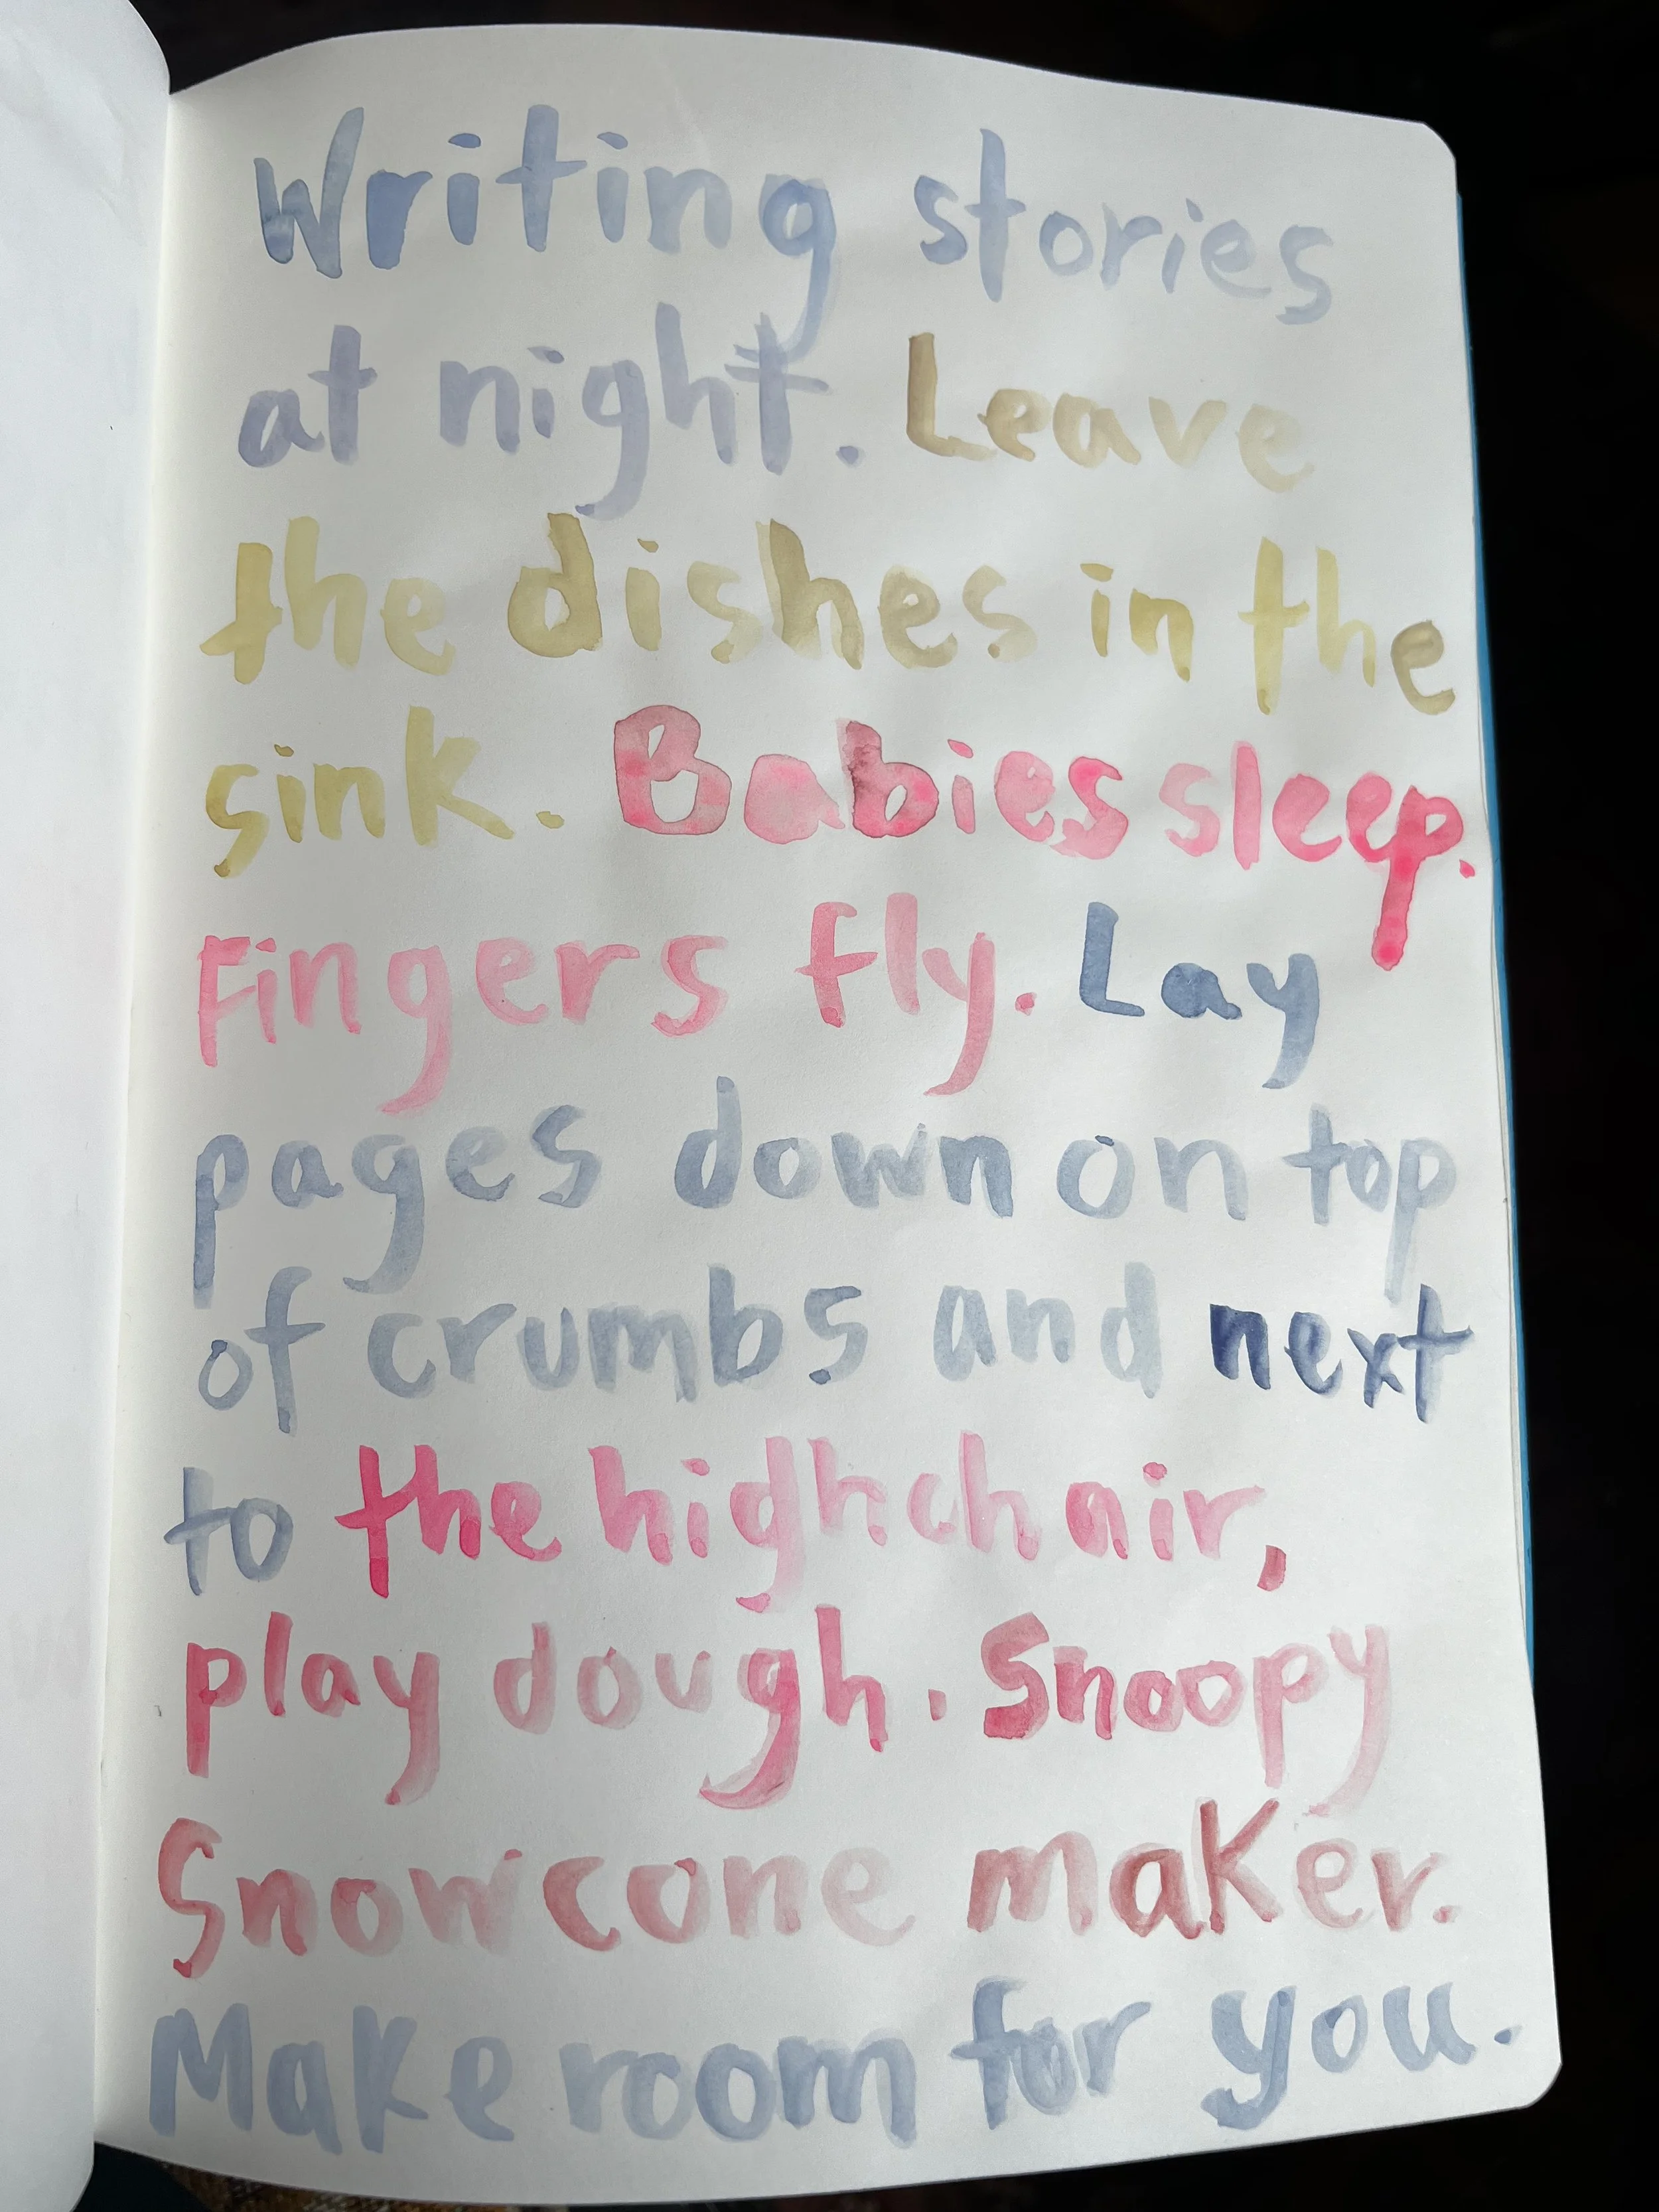 Writing stories
at night. Leave
the dishes in the
sink. Babies sleep.
Fingers fly. Lay
pages down on top
of crumbs and next
to the highchair,
play dough. Snoopy
Snowcone maker.
Make room for you.